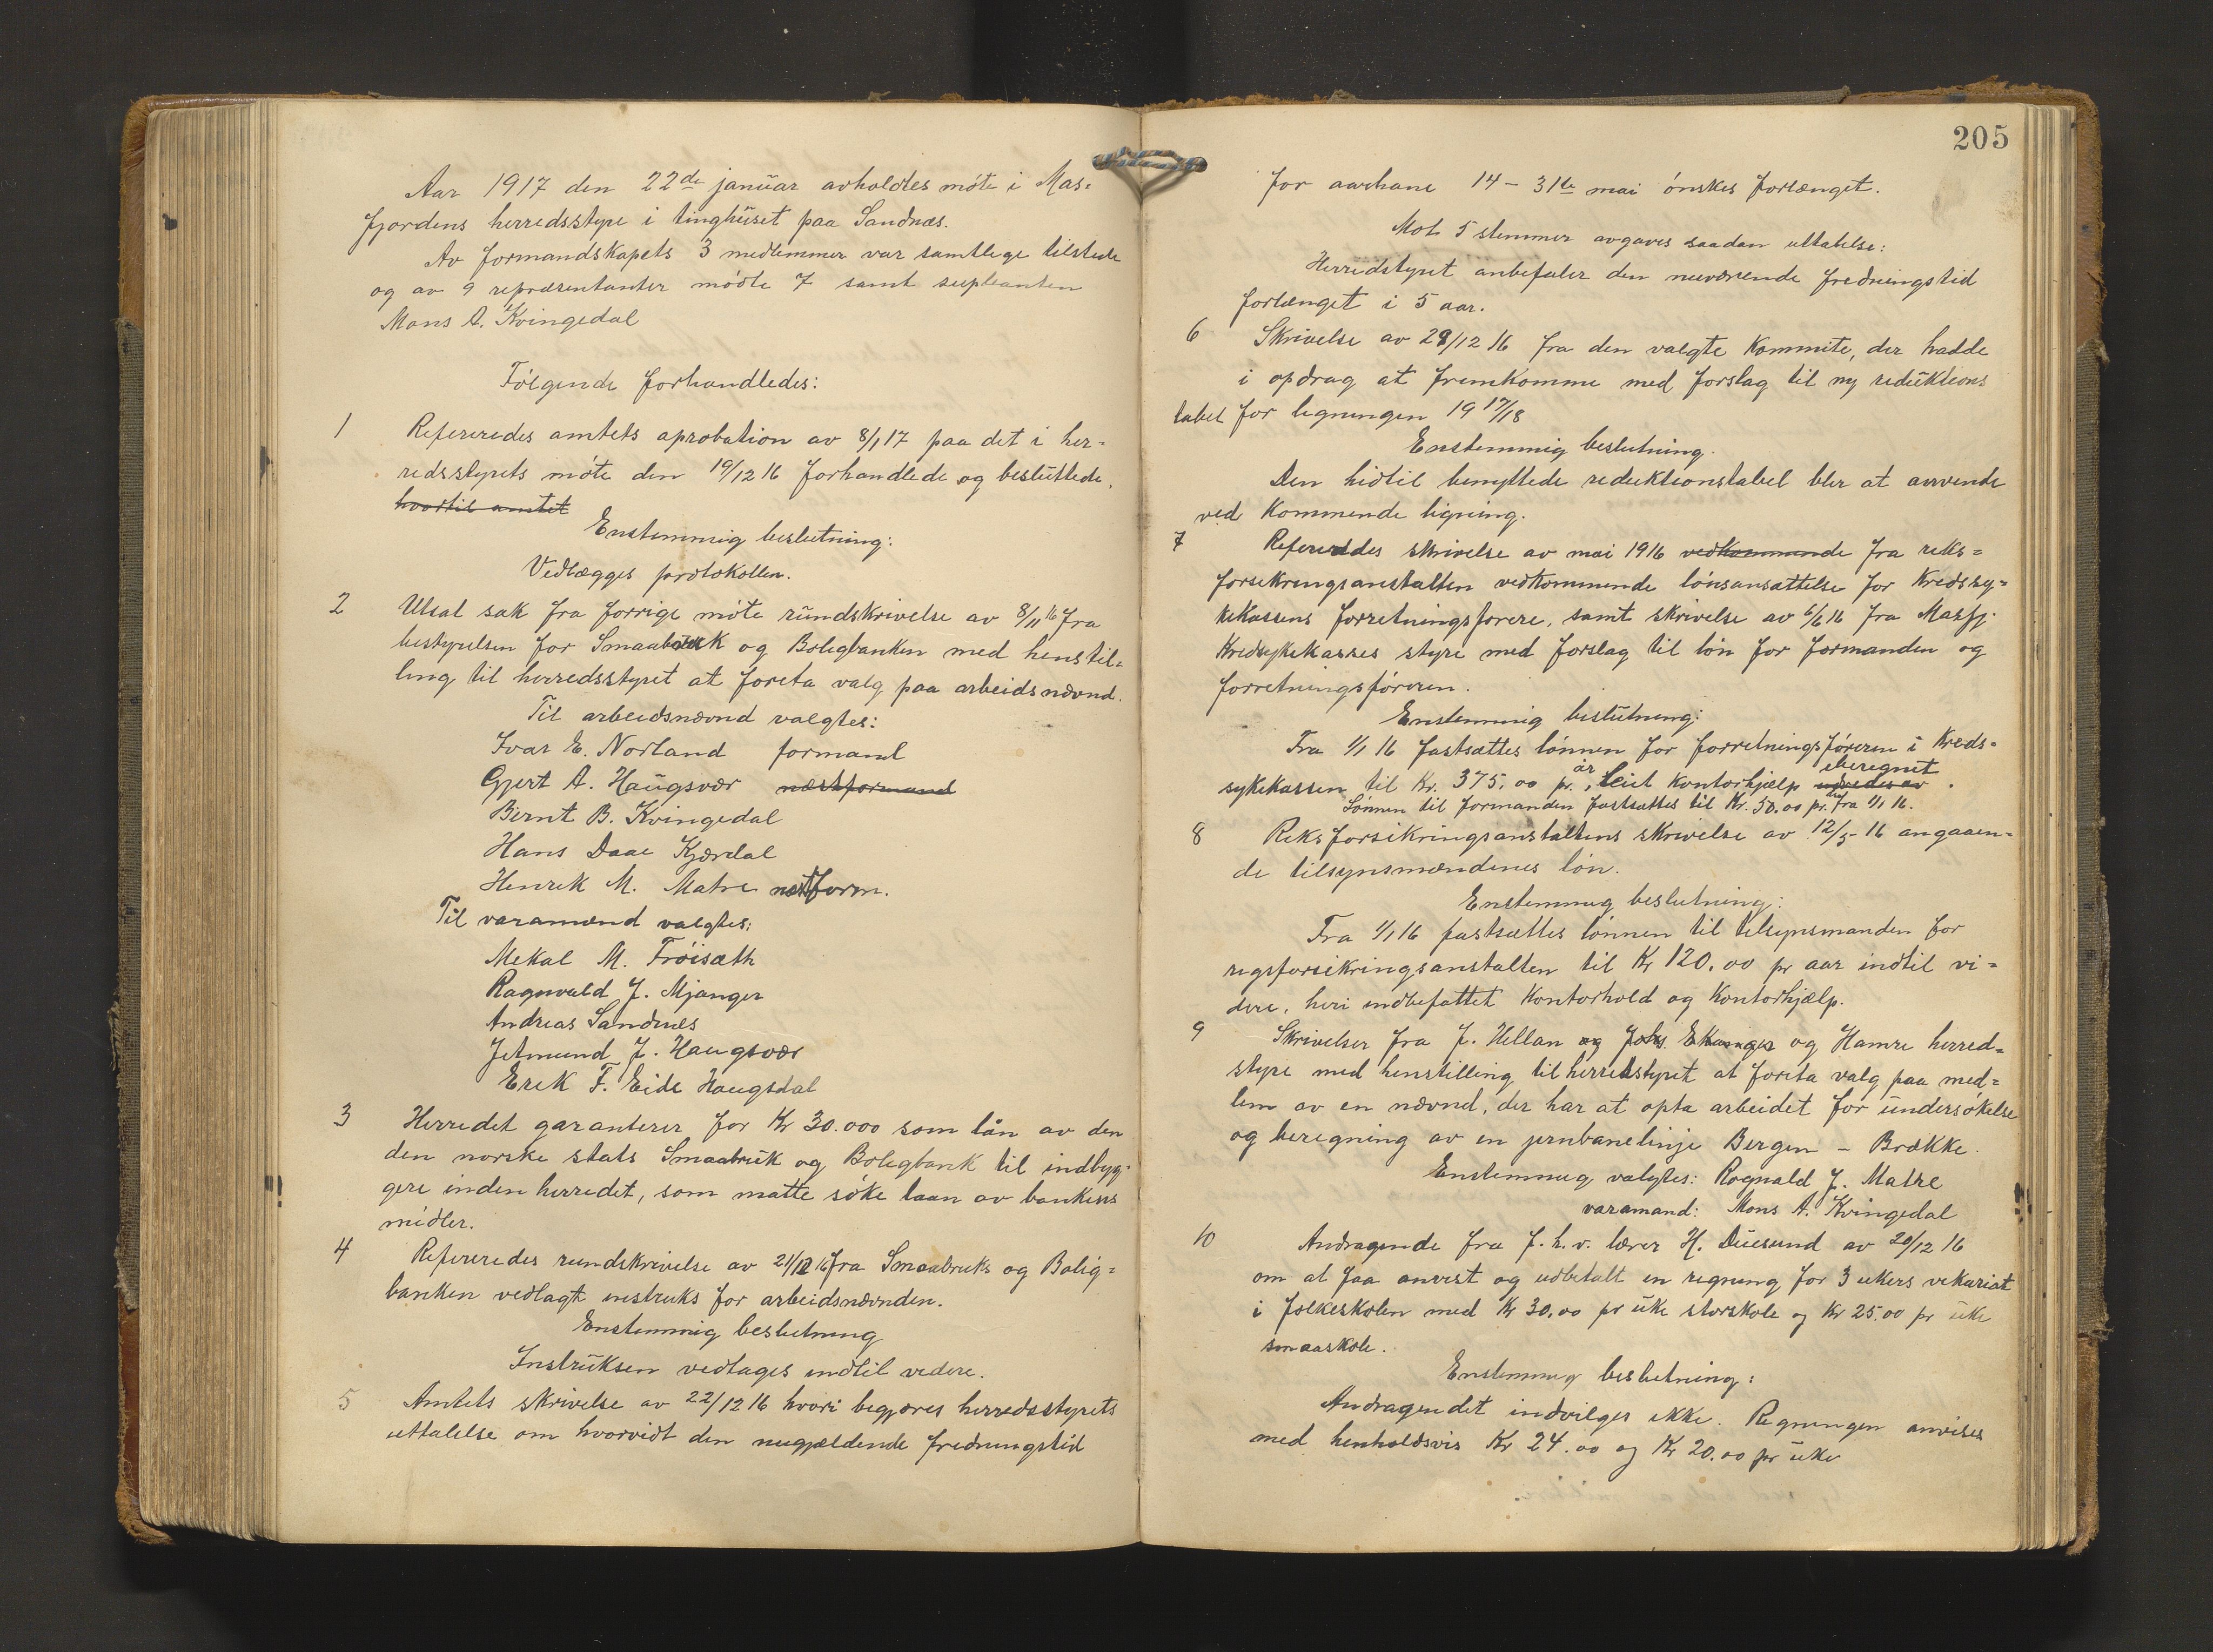 Aar 1917 den 22de januar avholdtes møte i Mas=
fjordens herredsstyre i tinghuset paa Sandnæs.
Av formandskapets 3 medlemmer var samtlege tilstede
og av 9 repræsentanter mødte 7 samt supleanten
Mons A. Kvingedal
Følgende forhandledes:
1 Refereredes amtets aprobation av 8/1 17 paa det i her=
redsstyrets møte den 19/12 16 forhandlede og besluttede,
hvortil amtet
Enstemmig beslutning:
Vedlægges protokollen.
2 Utsat sak fra forrige møte rundskrivelse av 8/11 16 fra
bestyrelsen for Smaabruk og Boligbanken med henstil=
ling til herredsstyret at foreta valg paa arbeidsnævnd.
Til arbeidsnævnd valgtes:
Ivar E. Norland formand
Gjert A. Haugsvær næstformand
Bernt B. Kvingedal
Hans Daae Kjærdal
Henrik M. Matre næstform.
Til varamænd valgtes:
Mekal M. Frøisæth
Ragnvald J. Mjanger
Andreas Sandnes
Jetmund J. Haugsvær
Erik F. Eide Haugsdal
3 Herredet garanterer for Kr 30.000 som lån av den
den norske stats Smaabruk og Boligbank til indbyg=
gere inden herredet, som måtte søke laan av bankens
midler.
4 Refereredes rundskrivelse av 21/12 16 fra Smaabruks og Bolig=
banken vedlagt instruks for arbeidsnævnden.
Enstemmig beslutning
Instruksen vedtages indtil videre.
5 Amtets skrivelse av 22/12 16 hvori begjæres herredsstyrets
uttalelse om hvorvidt den nugjældende fredningstid
205
for aarhane 14 - 31te mai ønskes forlænget.
Mot 5 stemmer avgaves saadan uttalelse:
Herredstyret anbefaler den nuværende fredningstid
forlænget i 5 aar.
6 Skrivelse av 28/12 16 fra den valgte Kommite, der hadde
i opdrag at fremkomme med forslag til ny reduktions
tabel for ligningen 19 17/18
Enstemmig beslutning.
Den hidtil benyttede reduktionstabel bler at anvende
ved Kommende ligning.
7 Refereredes skrivelse av mai 1916 vedkommende fra riks=
forsekringsanstalten vedkommende lønsansættelse for Kredssy=
kekassens forretningsførere, samt skrivelse av 6/6 16 fra Masfj.
Kredsykekasses styre med forslag til løn for formanden og
forretningsføreren.
Enstemmig beslutning:
Fra 1/1 16 fastsættes lønnen for forretningsføreren i Kreds=
sykekassen til Kr. 375,00 pr. år, leiet kontorhjælp iberegnet
Lønnen til formanden fastsættes til Kr. 50.00 pr. fra 1/1 16.
8 Riksforsikringsanstaltens skrivelse av 12/5 - 16 angaaen=
de tilsynsmændenes løn.
Enstemmig beslutning:
Fra 1/1 16 fastsættes lønnen til tilsynsmanden for
rigsforsikringsanstalten til Kr 120.00 pr aar indtil vi=
dere, heri indbefattet Kontorhold og Kontorhjælp.
9 Skrivelser fra J. Hellan og Johs. og Hamre herred=
styre med henstilling til herredstyret at foreta valg paa med=
lem av en nævnd, der har at opta arbeidet for undersøkelse
og beregning av en jernbanelinje Bergen - Brække.
Enstemmig valgtes: Rognald J. Matre
varamand: Mons A. Kvingedal
10 Andragende fra f. h. v. lærer H. Duesund av 20/12 16
om at faa anvist og udbetalt en regning for 3 ukers vikariat
i folkeskolen med Kr 30.00 pr uke storskole og Kr 25.00 pr uke
smaaskole.
Enstemmig beslutning:
Andragendet indvilges ikke. Regningen anvises
med henholdsvis Kr 24.00 og Kr 20.00 pr uke